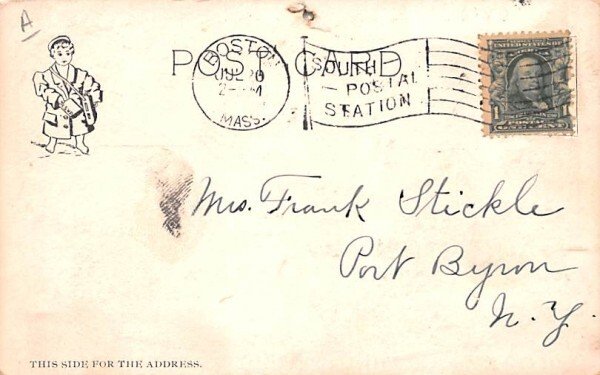 A
POST CARD
BOSTON
MASS.
SOUTH
POSTAL
STATION
UNITED STATES OF AMERICA
1 1
Mrs. Frank Stickle
Port Byron
N. Y.
THIS SIDE FOR THE ADDRESS.